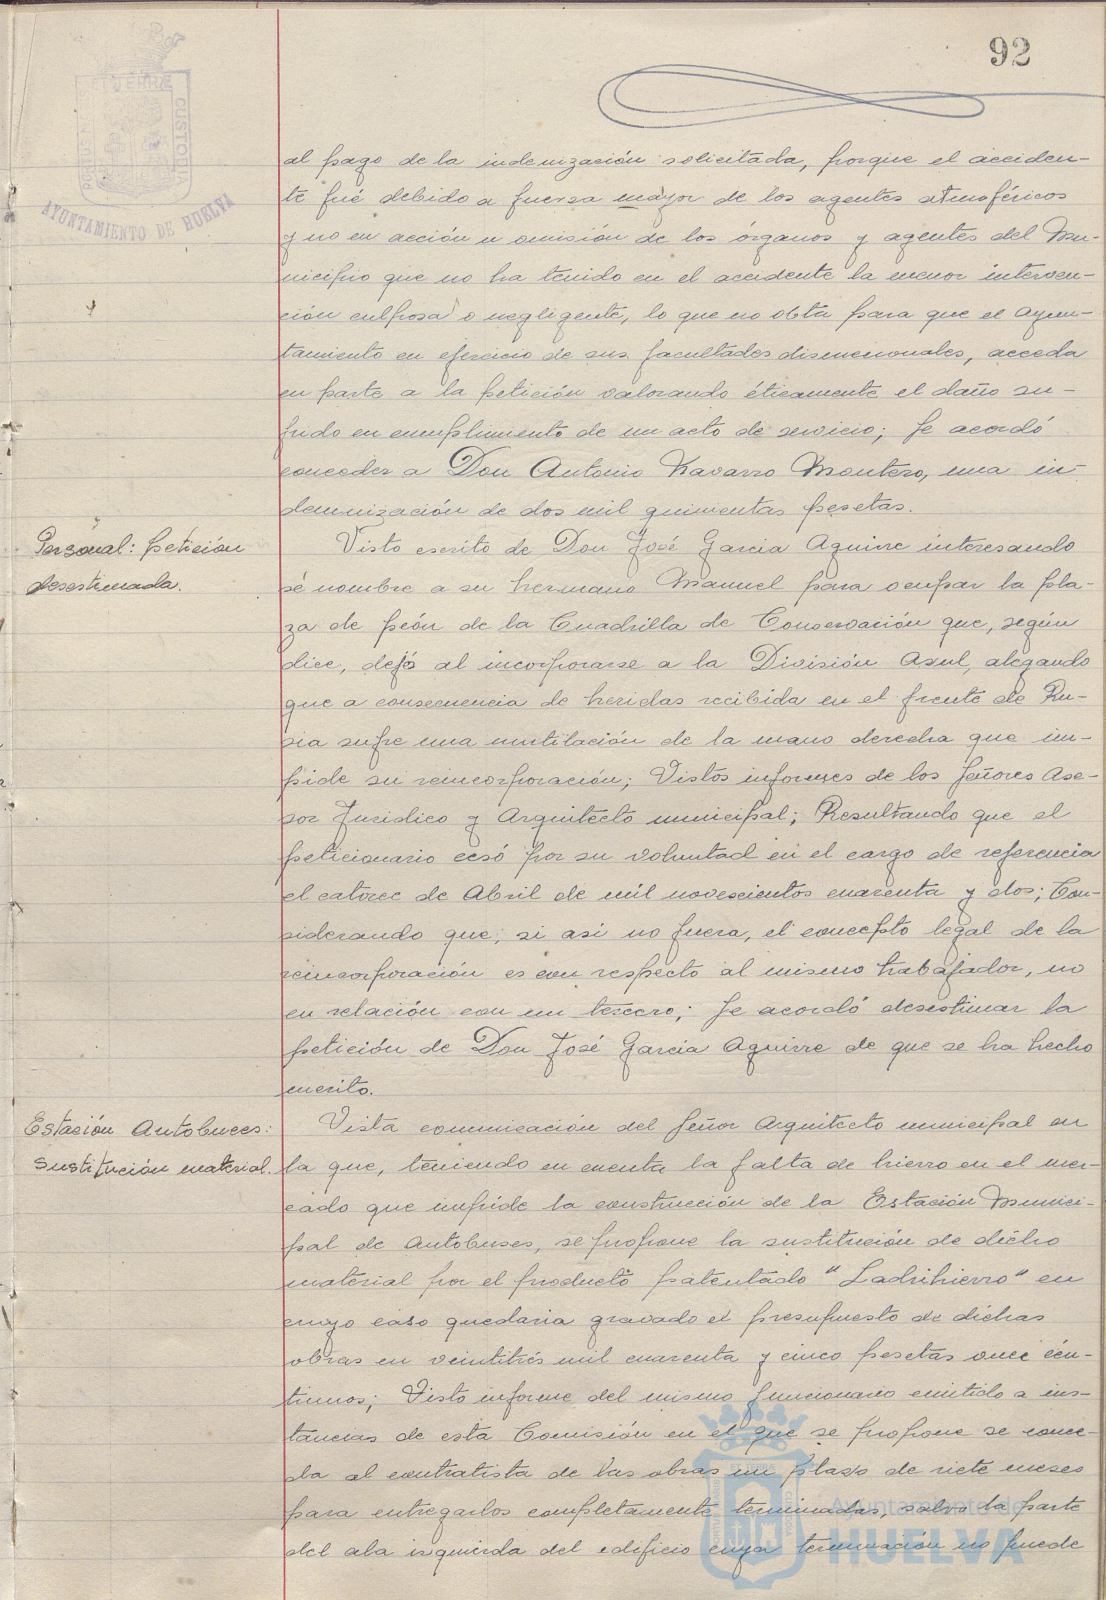 92
AYUNTAMIENTO DE HUELVA
al pago de la indenización solicitada, porque el acciden-
te fué debido a fuerza mayor de los agentes atmoféricos
y no en acción u omisión de los órganos y agentes del Mu-
nicipio que no ha tenido en el accidente la menor interven-
ción culposa o negligente, lo que no obta para que el Ayun-
tamiento en ejercicio de sus facultades discrecionales, acceda
en parte a la petición valorando éticamente el daño su-
frido en cumplimento de un acto de servicio; Se acordó
conceder a Don Antonio Navarro Montero, una in-
demnización de dos mil quinientas pesetas.
Personal: petición
desestimada.
Visto escrito de Don José Garcia Aguirre interesando
se nombre a su hermano Manuel para ocupar la pla-
za de peón de la Cuadrilla de Conservación que, según
dice, dejó al incorporarse a la División Azul, alegando
que a consecuencia de heridas recibida en el frente de Ru-
sia sufre una mutilación de la mano derecha que im-
pide su reincorporación; Vistos informes de los Señores Ase-
sor Juridico y Arquitecto municipal; Resultando que el
peticionario cesó por su voluntad en el cargo de referencia
el catorce de Abril de mil novescientos cuarenta y dos; Con-
siderando que, si asi no fuera, el concepto legal de la
reincorporación es con respecto al mismo trabajador, no
en relación con un tercero; Se acordó desestimar la
petición de Don José Garcia Aguirre de que se ha hecho
merito.
Estación Autobuces:
sustitución material.
Vista comunicación del Señor Arquitecto municipal en
la que, teniendo en cuenta la falta de hierro en el mer-
cado que impide la construcción de la Estación Munici-
pal de Autobuses, se propone la sustitución de dicho
material por el producto patentado "Ladrihierro" en
cuyo caso quedaria gravado el presupuesto de dichas
obras en veintitrés mil cuarenta y cinco pesetas once cén-
timos; Visto informe del mismo funcionario emitido a ins-
tancias de esta Comisión en el que se propone se conce-
da al contratista de las obras un plazo de siete meses
para entregarlos completamente terminadas, salvo la parte
del ala izquierda del edificio cuya terminación no puede
Ayuntamiento de
HUELVA